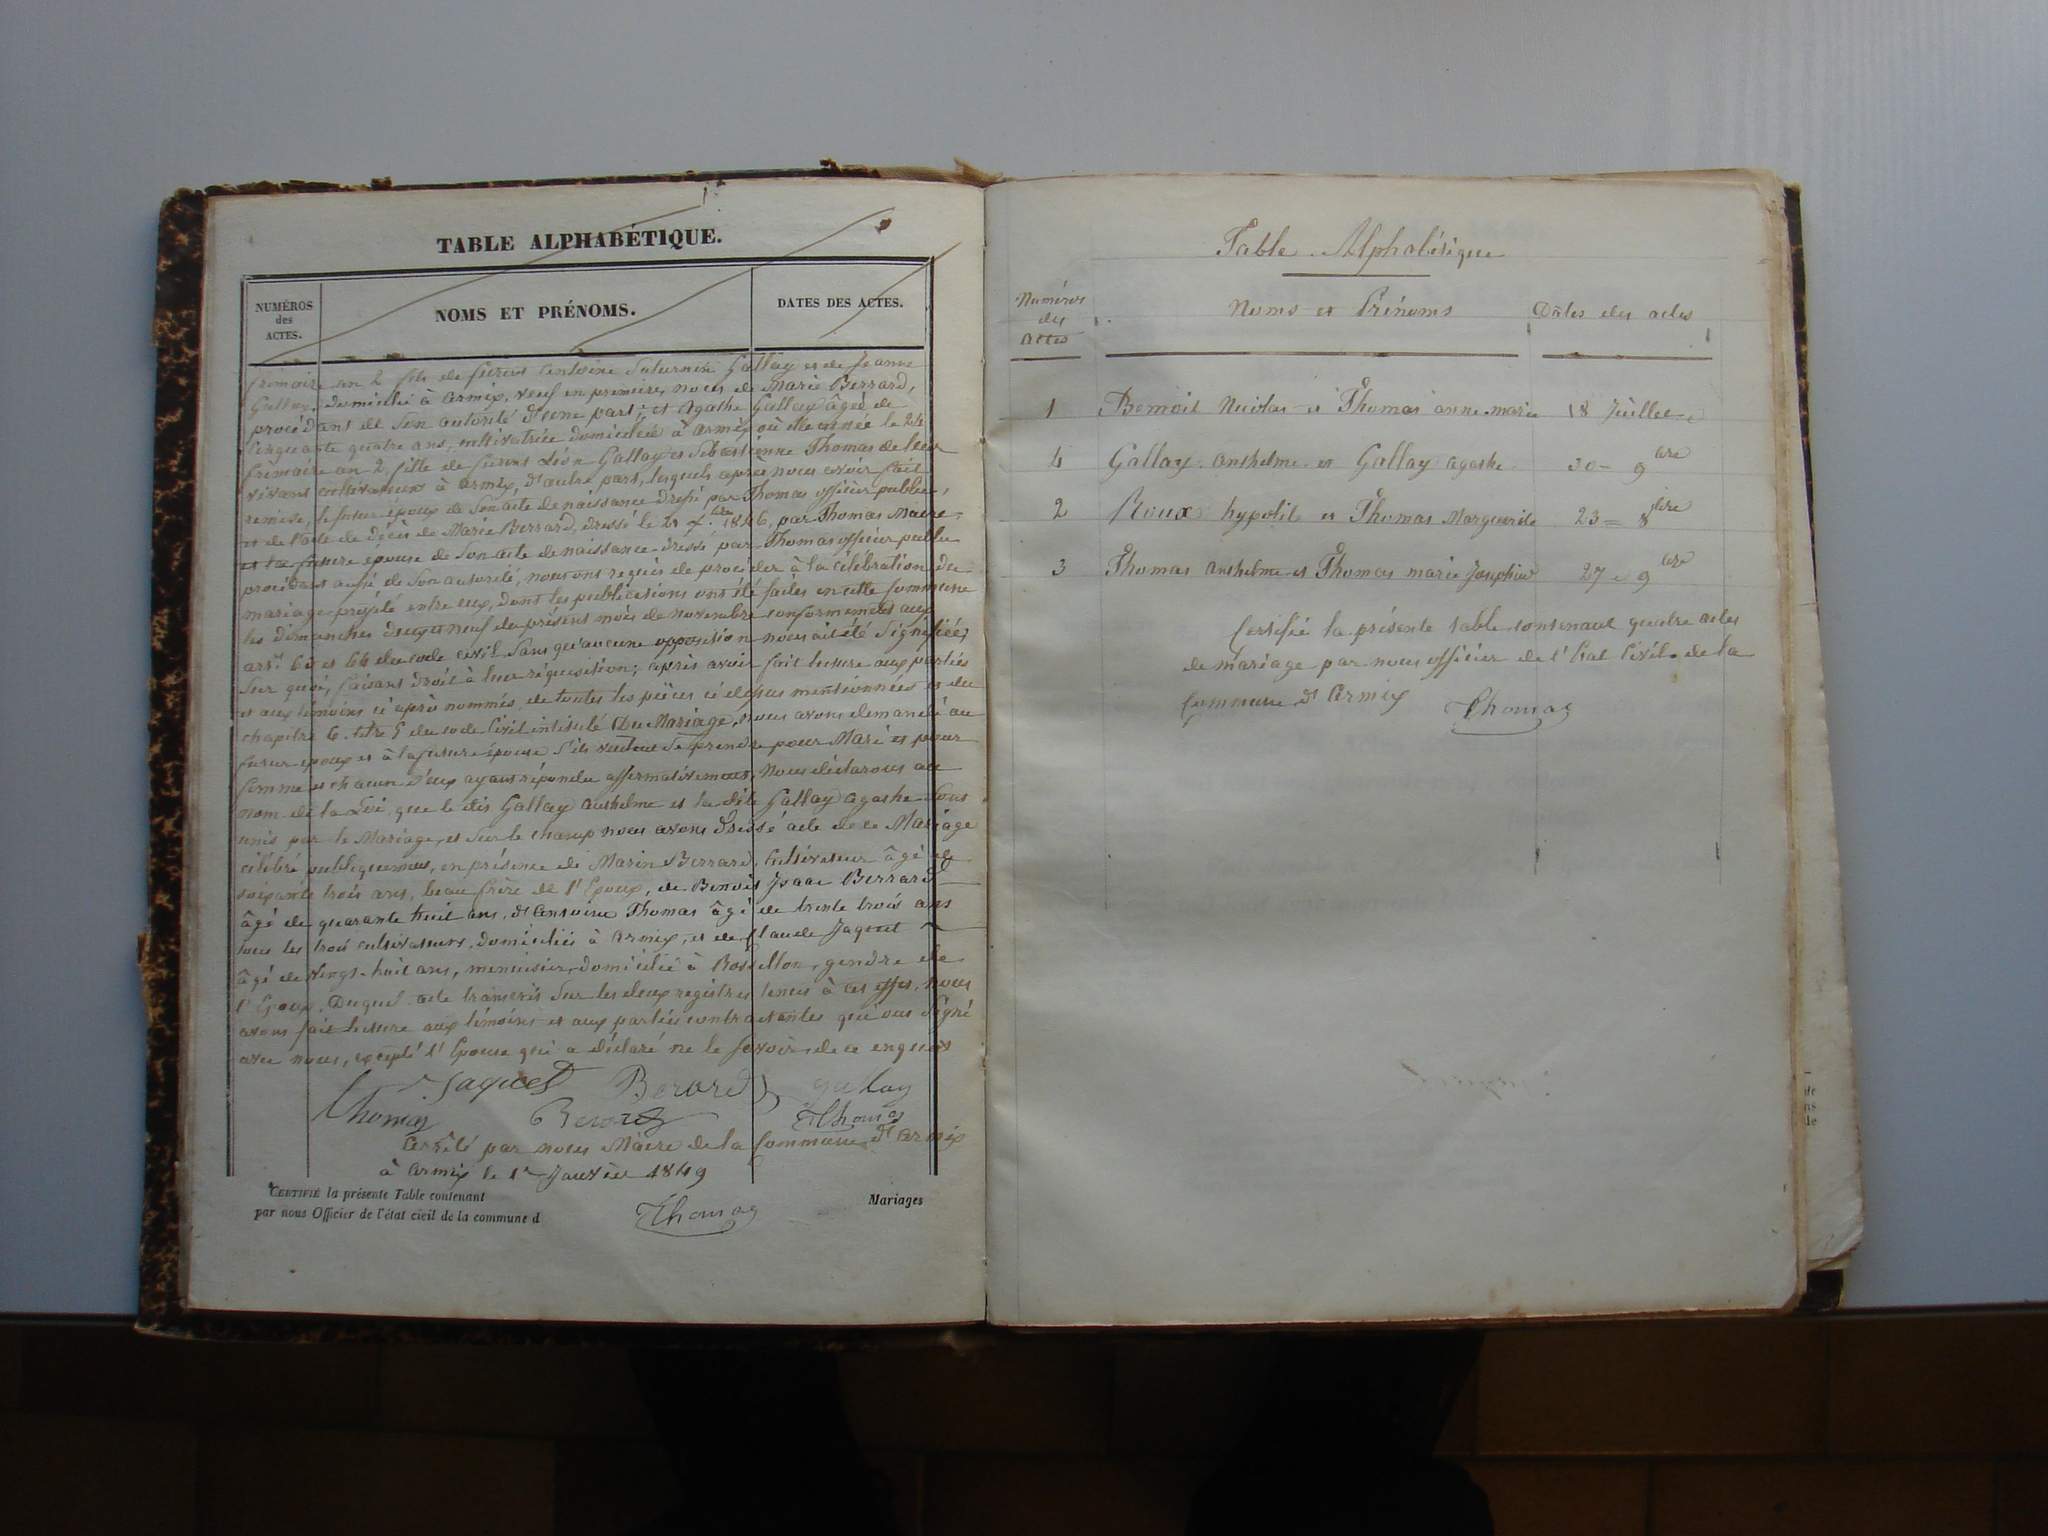 TABLE ALPHABÉTIQUE.
NUMÉROS
des
ACTES.
NOMS ET PRÉNOMS.
DATES DES ACTES.
frimaire an 2 fils de furent Antoine Saturnin Gallay et de Jeanne
Gallay, domicilié à Armix, veuf en premières noces de Marie Berrard,
procédant de son autorité d'une part; et Agathe Gallay âgée de
Cinquante quatre ans, cultivatrice domiciliée à Armix où elle est née le 24
frimaire an 2, fille de furent Léon Gallay et Sébastienne Thomas de leur
vivant cultivateurs à Armix, d'autre part, lesquels après nous avoir fait
remise, le futur époux de son acte de naissance dressé par Thomas officier public,
et de l'acte de décès de Marie Berrard, dressé le 21 1846, par Thomas Maire,
et la future épouse de son acte de naissance dressé par Thomas officier public
procédant aussi de son autorité, nous ont requis de procéder à la célébration du
mariage projeté entre eux, dont les publications ont été faites en cette commune
les dimanches du présent mois de novembre conformément aux
art. 63 et 64 du code civil sans qu'aucune opposition nous ait été signifiée;
Sur quoi, faisant droit à leur réquisition; après avoir fait lecture aux parties
et aux témoins ci après nommés, de toutes les pièces ci dessus mentionnées et du
chapitre 6. titre 5 du code Civil intitulé Du Mariage, nous avons demandé au
futur époux et à la future épouse s'ils veulent se prendre pour Mari et pour
femme et chacun d'eux ayant répondu affirmativement, Nous déclarons au
nom de la Loi, que le dit Gallay Anthelme et la dite Gallay Agathe sont
unis par le Mariage, et sur le champ nous avons dressé acte de ce Mariage
célébré publiquement, en présence de Marin Berrard, Cultivateur âgé de
soixante trois ans, beau frère de l'Epoux, de Benoit Isaac Berrard
âgé de quarante huit ans, d'Antoine Thomas âgé de trente trois ans
tous les trois cultivateurs, domiciliés à Armix, et de Claude Jaquet
âgé de vingt-huit ans, menuisier, domicilié à Rossillon, gendre de
l'Epoux. Duquel acte transcrit sur les deux registres tenus à cet effet, nous
avons fait lecture aux témoins et aux parties contractantes qui ont signé
avec nous, excepté l'Epouse qui a déclaré ne le savoir, de ce enquis
Jaquet Berard Gallay
Thomas Berard Thomas
Arrêté par nous Maire de la Commune d'Armix
à Armix le 1er Janvier 1849
CERTIFIÉ la présente Table contenant
Mariages
par nous Officier de l'état civil de la commune d
Thomas
Table Alphabétique
Numéros
des
Actes
Noms et Prénoms
Dates des actes
1 Benoit Nicolas et Thomas anne marie 18 Juillet
4 Gallay Anthelme et Gallay Agathe 30 - 9bre
2 Roux hypolite et Thomas Marguerite 23 = 8bre
3 Thomas Anthelme et Thomas marie Josephine 27 = 9bre
Certifié la présente table contenant quatre actes
de mariage par nous officier de l'Etat Civil de la
Commune d'Armix
Thomas